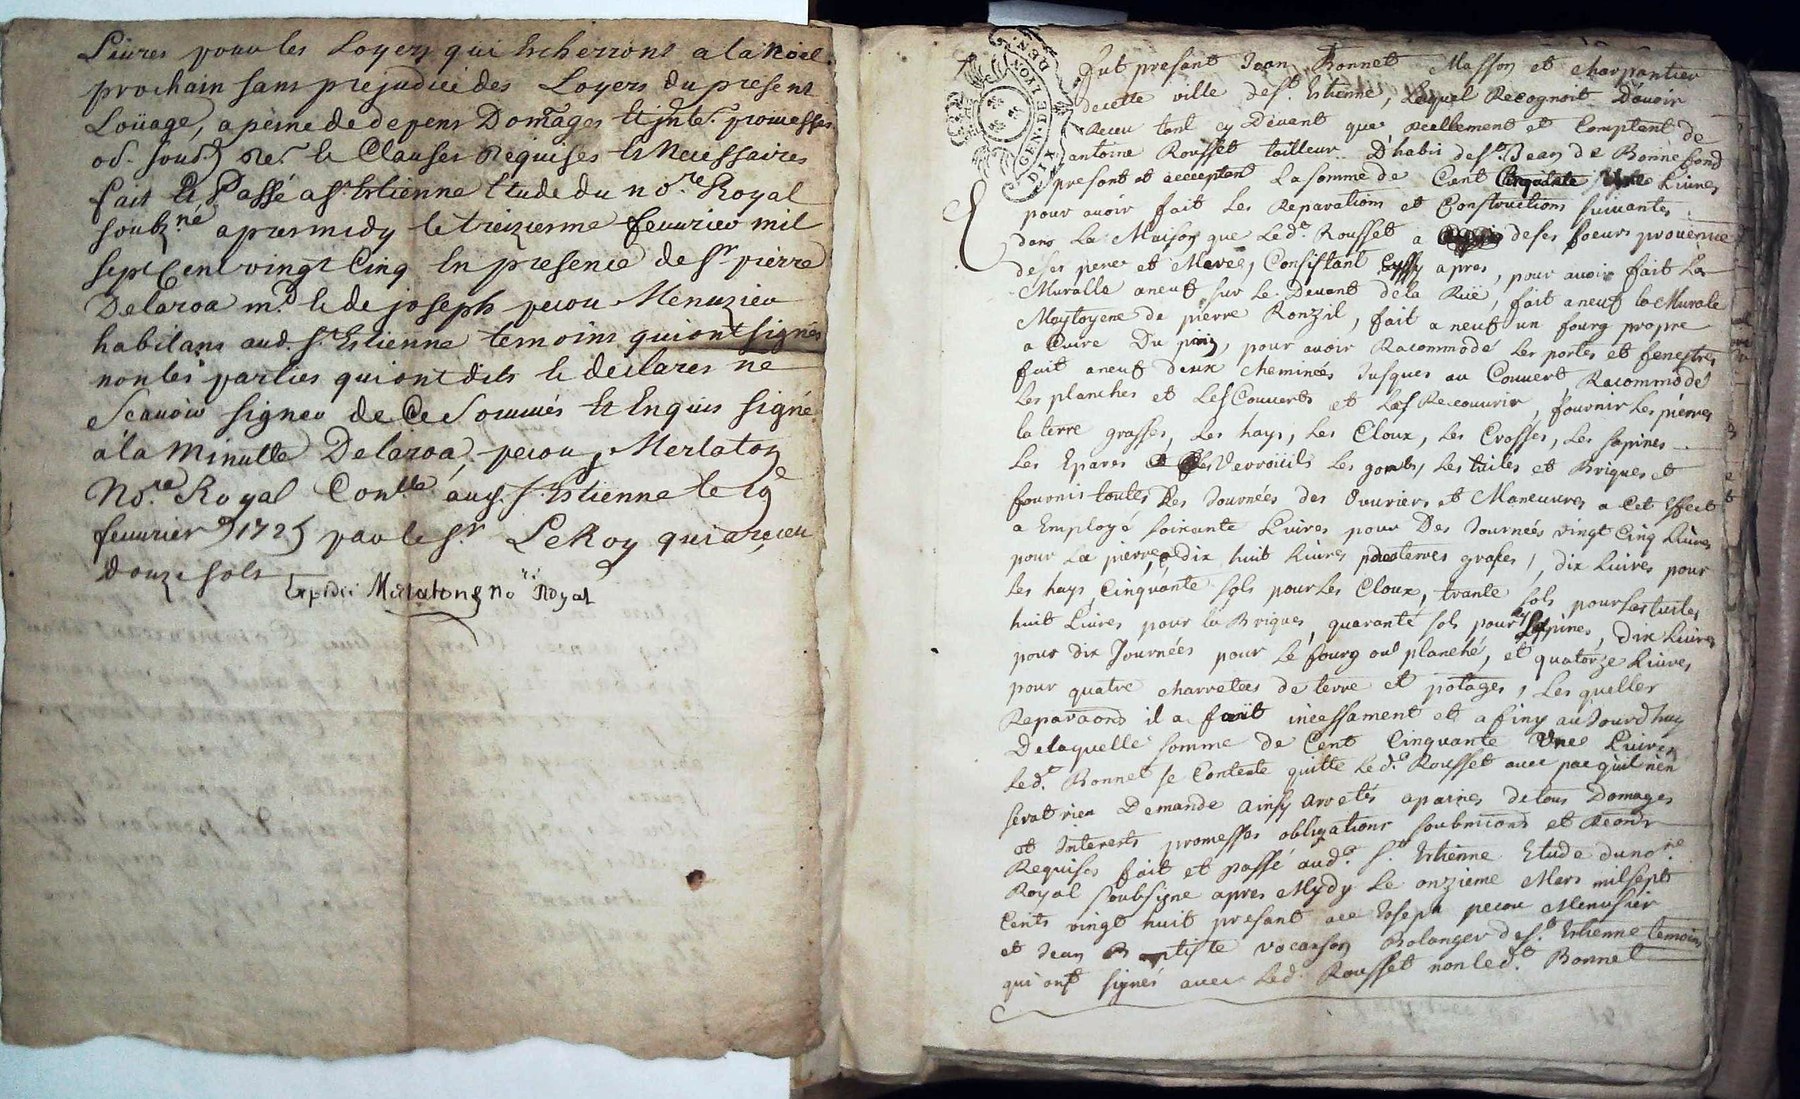 Livres pour les Loyers qui Escherront a la Noel
prochain sans prejudice des Loyers du present
Loüage, a peine de depens Domages et promesses
Clauses Requises Et Necessaires
fait Et Passé a St Estienne Etude du nore Royal
soubzne apres midy le treizieme feuurier mil
sept Cent vingt Cinq En presence de sr pierre
Delaroa md et de joseph pecou Menuzier
habitans aud. St Estienne temoins qui ont signés
non les parties qui ont dits et declarés ne
Scauoir signer de Ce Sommés Et Enquis signé
a la Minutte Delaroa, pecou, Merlaton
Nore Royal Conllé aud. St Estienne le 19e
feuurier 1725 par le Sr LeRoy qui a receu
douze sols
Expedié Merlaton No re Royal
GEN. DE LION
DIX DEN.
fut présant Jean Bonnet Masson et charpantier
de cette ville de St. Estienne, Lequel Recognoit D'auoir
Receu tant cy Deuant que Reellement et Comptant de
antoine Rousset tailleur D'habis de St. Jean de Bonnefond
présant et acceptant La somme de Cent Cinquante Une Liures
pour auoir fait Les Réparations et Constructions suiuantes
dans La Maison que Led. Rousset a de ses soeurs prouenue
de ses pere et Mere, Consistant Cyapres, pour auoir fait La
Muralle a neuf sur Le Deuant de la Rüe, fait a neuf la Murale
Maytoyene de pierre Ronzil, fait a neuf un fourg propre
a Cuire Du pain, pour auoir Racommodé Les portes et fenestres
fait a neuf deux cheminées Jusques au Couuert, Racommodé
Les planches et Les Couuerts et Les Recouurir, fournir Les pierres
la terre grasse, Les hays, Les Cloux, Les Crosses, Les sapines
Les Epares Les Verroüils Les gonts, Les tuiles et Briques et
fournis toutes Les Journées des ouuriers et Maneuures a Cet Effect
a Employé soixante Liures pour Des Journées vingt Cinq Liures
pour La pierre, dix huit Liures terres grases, dix Liures pour
Les hays, Cinquante sols pour Les Cloux, trante sols pour Les tuiles
huit Liures pour la Briques, quarante sols pour Les sapines, dix Liures
pour dix Journées pour Le fourg ou planché, et quatorze Liures
pour quatre charretées de terre et potages, Les quelles
Reparaons il a fait incessament et a finy aujourdhuy
De laquelle somme de Cent Cinquante Une Liures
Led. Bonnet se Contente quitte Led. Rousset auec pac qu'il n'en
serat rien Demandé ainsy arretés a paines de tous Domages
et Interests promesses obligations soubmions et
Requises fait et passé aud. St Estienne Etude du nore
Royal soubsigné apres Mydy Le onzieme Mars mil sept
Cents vingt huit présant Joseph pecou Menusier
et Jean Baptiste vocanson Bolanger de St. Estienne temoins
qui ont signés auec Led. Rousset non led. Bonnet